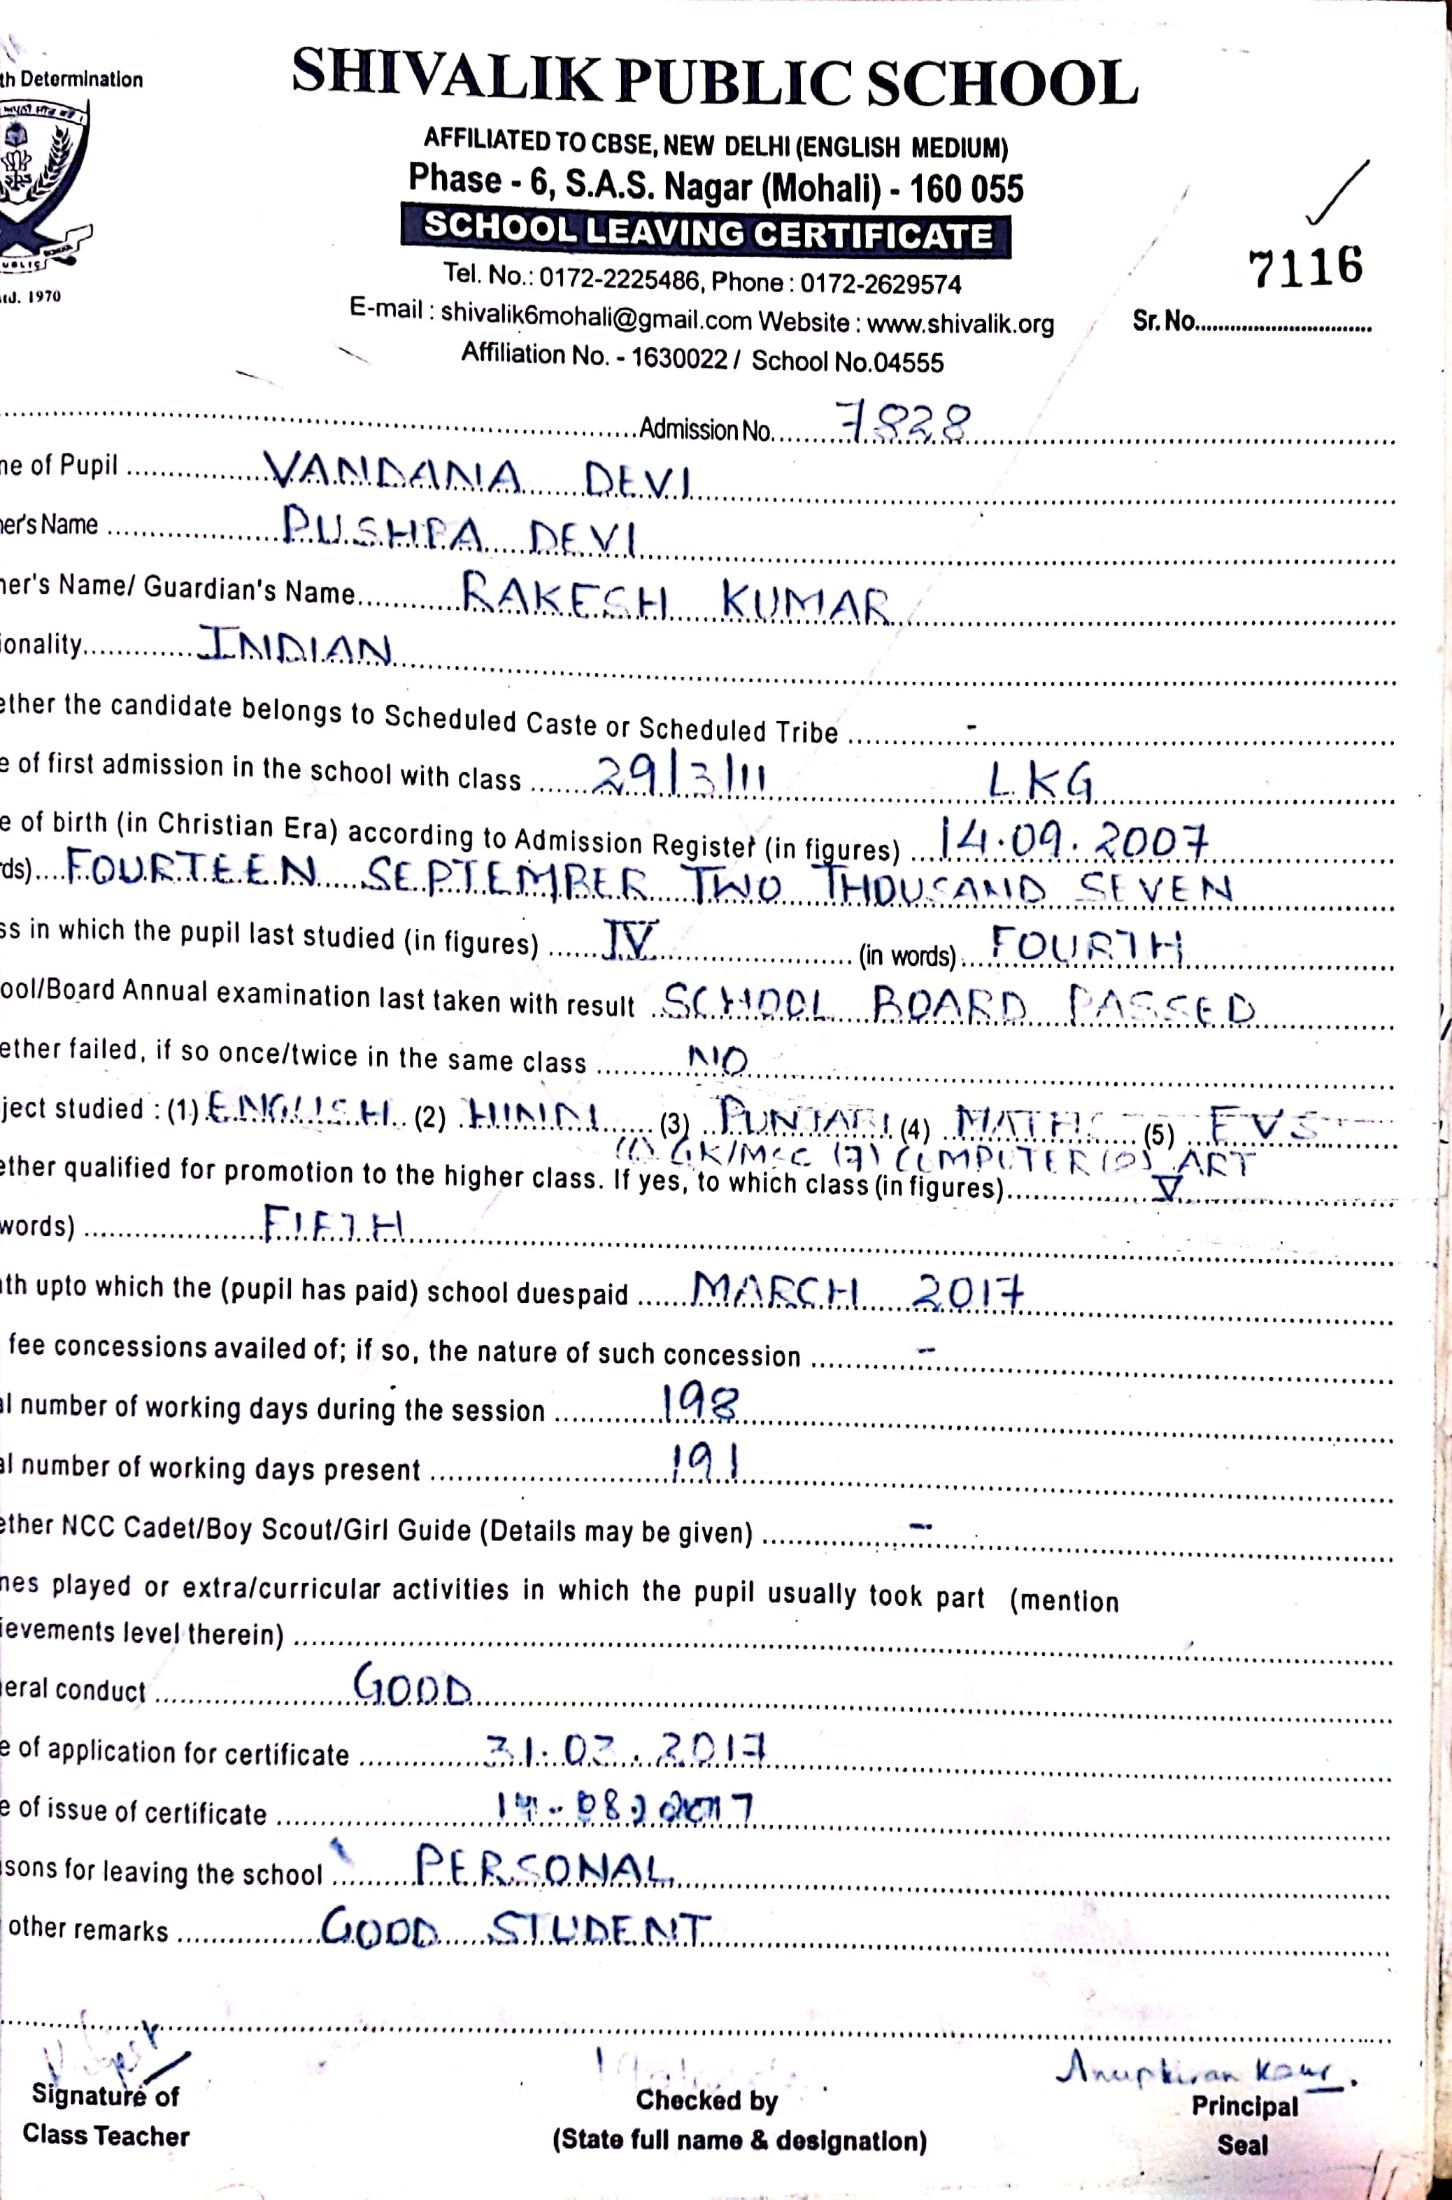 th Determination
SHIVALIK PUBLIC SCHOOL
AFFILIATED TO CBSE, NEW DELHI (ENGLISH MEDIUM)
Phase - 6, S.A.S. Nagar (Mohali) - 160 055
SCHOOL LEAVING CERTIFICATE
Tel. No.: 0172-2225486, Phone : 0172-2629574
7116
E-mail : shivalik6mohali@gmail.com Website : www.shivalik.org
Sr. No.
Affiliation No. - 1630022 / School No.04555
td. 1970
Admission No. 7828
ne of Pupil VANDANA DEVI
ner's Name PUSHPA DEVI
ner's Name/ Guardian's Name RAKESH KUMAR
ionality INDIAN
ether the candidate belongs to Scheduled Caste or Scheduled Tribe -
e of first admission in the school with class 29/3/11 LKG
e of birth (in Christian Era) according to Admission Register (in figures) 14.09.2007
rds) FOURTEEN SEPTEMBER TWO THOUSAND SEVEN
ss in which the pupil last studied (in figures) IV (in words) FOURTH
ool/Board Annual examination last taken with result SCHOOL BOARD PASSED
ether failed, if so once/twice in the same class NO
ject studied : (1) ENGLISH (2) HINDI (3) PUNJABI (4) MATHS (5) EVS
GK/MSC (7) COMPUTER (8) ART
ether qualified for promotion to the higher class. If yes, to which class (in figures) V
words) FIFTH
th upto which the (pupil has paid) school duespaid MARCH 2017
fee concessions availed of; if so, the nature of such concession -
al number of working days during the session 198
al number of working days present 191
ether NCC Cadet/Boy Scout/Girl Guide (Details may be given) -
nes played or extra/curricular activities in which the pupil usually took part (mention
ievements level therein)
eral conduct GOOD
e of application for certificate 31.03.2017
e of issue of certificate
sons for leaving the school PERSONAL
other remarks GOOD STUDENT
Anupkiran Kaur.
Signature of
Class Teacher
Checked by
(State full name & designation)
Principal
Seal